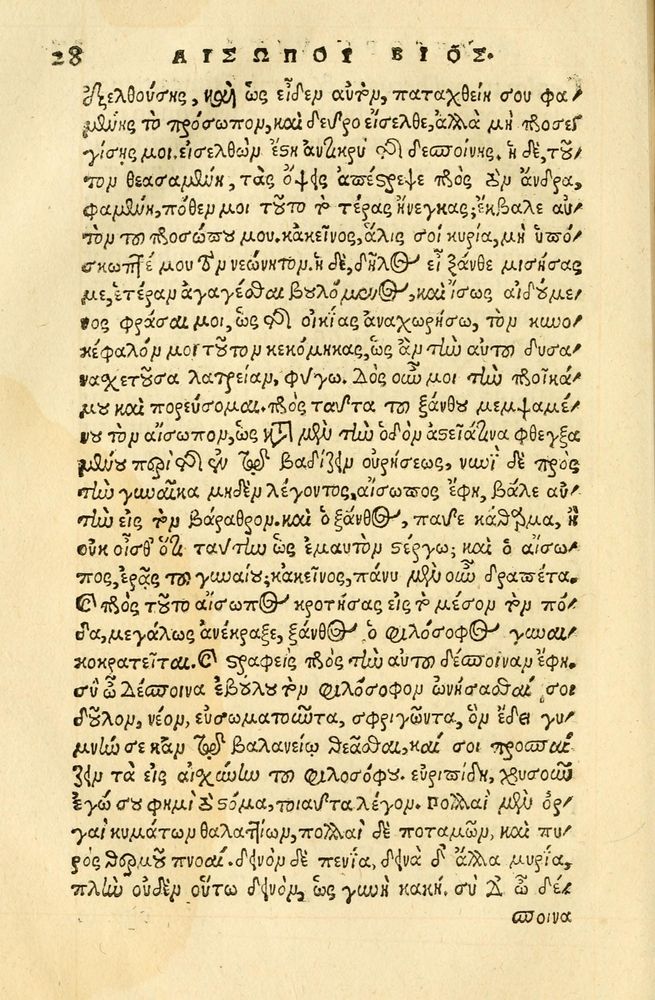 28 ΑΙΣΩΠΟΥ ΒΙΟΣ.
ἐξελθούσης, καὶ ὡς εἶδεν αὐτὸν, παταχθείη σου φα-
μένης τὸ πρόσωπον, καὶ δεῦρο εἴσελθε, ἀλλὰ μὴ προσεγ-
γίσῃς μοι. εἰσελθὼν ἔστη ἀντικρὺ τῆς δεσποίνης. ἡ δὲ, τοῦ-
τον θεασαμένη, τὰς ὄψεις ἀπέστρεψε πρὸς τὸν ἄνδρα,
φαμένη, πόθεν μοι τοῦτο τὸ τέρας ἤνεγκας; ἔκβαλε αὐ-
τὸν τοῦ προσώπου μου. κἀκεῖνος, ἅλις σοι κυρία, μὴ ὑπό-
σκωπτέ μου τὸν νεώνητον. ἡ δὲ, δῆλος εἶ ξάνθε μισήσας
με, ἑτέραν ἀγαγέσθαι βουλόμενος, καὶ ἴσως αἰδούμε-
νος φράσαι μοι, ὡς τῆς οἰκίας ἀναχωρήσω, τὸν κυνο-
κέφαλόν μοι τοῦτον κεκόμηκας, ὡς ἂν τὴν αὐτοῦ δυσα-
νασχετοῦσα λατρείαν, φύγω. Δὸς οὖν μοι τὴν προῖκά
μου καὶ πορεύσομαι. πρὸς ταῦτα τοῦ ξάνθου μεμψαμέ-
νου τὸν αἴσωπον, ὡς κατὰ μὲν τὴν ὁδὸν ἀστεῖά τινα φθεγξα
μένου περὶ τῆς ἐν τῷ βαδίζειν οὐρήσεως, νυνὶ δὲ πρὸς
τὴν γυναῖκα μηδὲν λέγοντος, αἴσωπος ἔφη, βάλε αὐ-
τὴν εἰς τὸ βάραθρον. καὶ ὁ ξάνθος, παῦε κάθαρμα, ἢ
οὐκ οἶσθ' ὅτι ταύτην ὡς ἐμαυτὸν στέργω; καὶ ὁ αἴσω-
πος, ἐρᾷς τοῦ γυναίου; κἀκεῖνος, πάνυ μὲν οὖν δραπέτα.
Καὶ πρὸς τοῦτο αἴσωπος κροτήσας εἰς τὸ μέσον τὸν πό-
δα, μεγάλως ἀνέκραξε, ξάνθος ὁ φιλόσοφος γυναι-
κοκρατεῖται. Καὶ στραφεὶς πρὸς τὴν αὐτοῦ δέσποιναν ἔφη.
σὺ ὦ Δέσποινα ἐβούλου τὸν φιλόσοφον ὠνήσασθαί σοι
δοῦλον, νέον, εὐσωματοῦντα, σφριγῶντα, ὃν ἔδει γυ-
μνήν σε κἀν τῷ βαλανείῳ θεᾶσθαι, καί σοι προσπαί-
ζειν τὰ εἰς αἰχύνην τοῦ φιλοσόφου. εὐριπίδη, χρυσοῦν
ἐγώ σου φημὶ τὸ στόμα, τοιαῦτα λέγον. Πολλαὶ μὲν ὀρ-
γαὶ κυμάτων θαλαττίων, πολλαὶ δὲ ποταμῶν, καὶ πυ-
ρὸς θερμοῦ πνοαί. δεινὸν δὲ πενία, δεινὰ δ' ἄλλα μυρία,
πλὴν οὐδὲν οὕτω δεινὸν, ὡς γυνὴ κακή. σὺ δὲ ὦ δέ-
σποινα